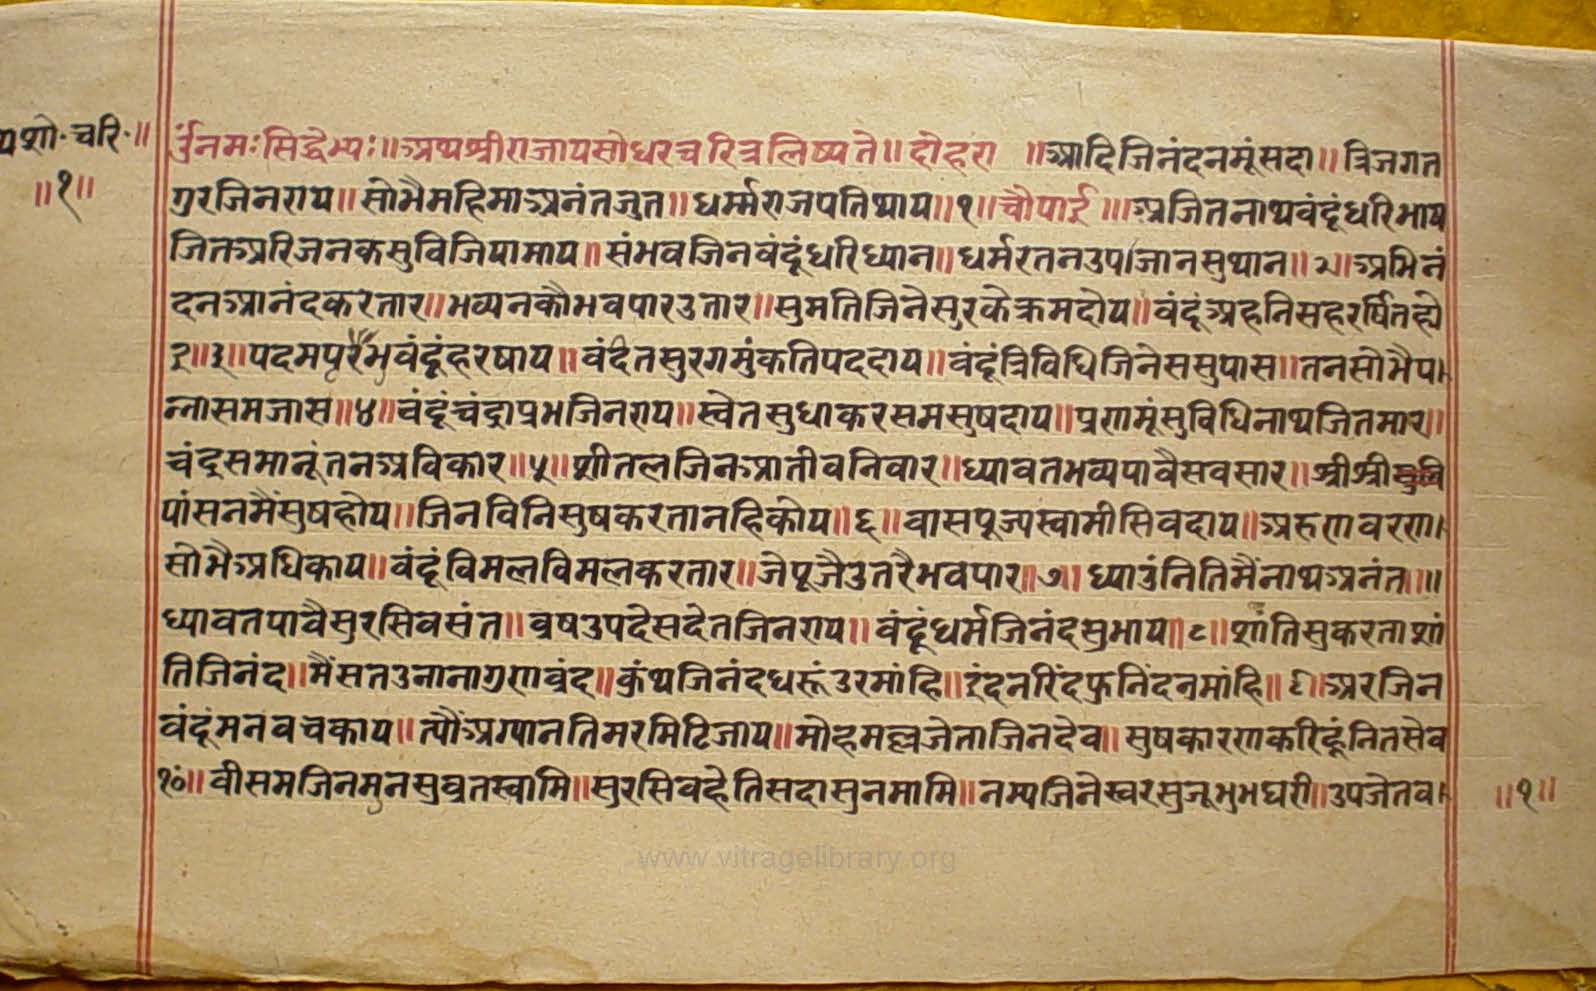 यशो॰चरि॰॥
॥१॥
ॐनमःसिद्धेभ्यः॥अथश्रीराजायसोधरचरित्रलिष्यते॥दोहरा॥आदिजिनंदनमूंसदा॥त्रिजगत
गुरजिनराय॥सोभैमहिमाअनंतजुत॥धर्म्मराजपतिथाय॥१॥चौपाई॥अजितनाथवंदूंधरिभाय
जितअरिजनकसुविजियामाय॥संभवजिनवंदूंधरिध्यान॥धर्मरतनउपजानसुथान॥२॥अभिनं
दनआनंदकरतार॥भव्यनकौभवपारउतार॥सुमतिजिनेसुरकेक्रमदोय॥वंदूंअहनिसहरर्षितहो
इ॥३॥पदमप्रभुवंदूंहरषाय॥वंदितसुरगमुंकतिपददाय॥वंदूंत्रिविधिजिनेससुपास॥तनसोभैप
न्नासमजास॥४॥वंदूंचंद्राप्रभजिनराय॥स्वेतसुधाकरसमसुषदाय॥प्रणमूंसुविधिनाथजितमार॥
चंद्रसमानूंतनअविकार॥५॥शीतलजिनआतीवनिवार॥ध्यावतभव्यपावैसवसार॥श्रीश्री
पांसनमैंसुषहोय॥जिनविनिसुषकरतानहिकोय॥६॥वासपूज्यस्वामीसिवदाय॥अरुणवरण
सोभैअधिकाय॥वंदूंविमलविमलकरतार॥जेपूजैउतरैभवपार॥७॥ध्याउंनितिमैंनाथअनंत॥॥
ध्यावतपावैसुरसिवसंत॥वृषउपदेसदेतजिनराय॥वंदूंधर्मजिनंदसुभाय॥८॥शांतिसुकरताशां
तिजिनंद॥मैंसतउनानागुणवृंद॥कुंथजिनंदधरूंउरमांहि॥इंदनरिंदफुनिंदनमांहि॥९॥अरजिन
वंदूंमनवचकाय॥त्यौंअग्यानतिमरमिटिजाय॥मोहमल्लजेताजिनदेव॥सुषकारणकरिहूंनितसेव
१०॥वीसमजिनमुनसुव्रतस्वामि॥सुरसिवहेतिसदासुनमामि॥नम्यजिनेस्वरसुजूमुमघरी॥उपजेतव
॥१॥
www.vitragelibrary.org